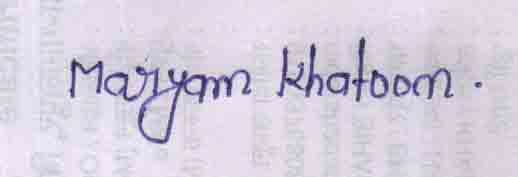 Maryam Khatoon.